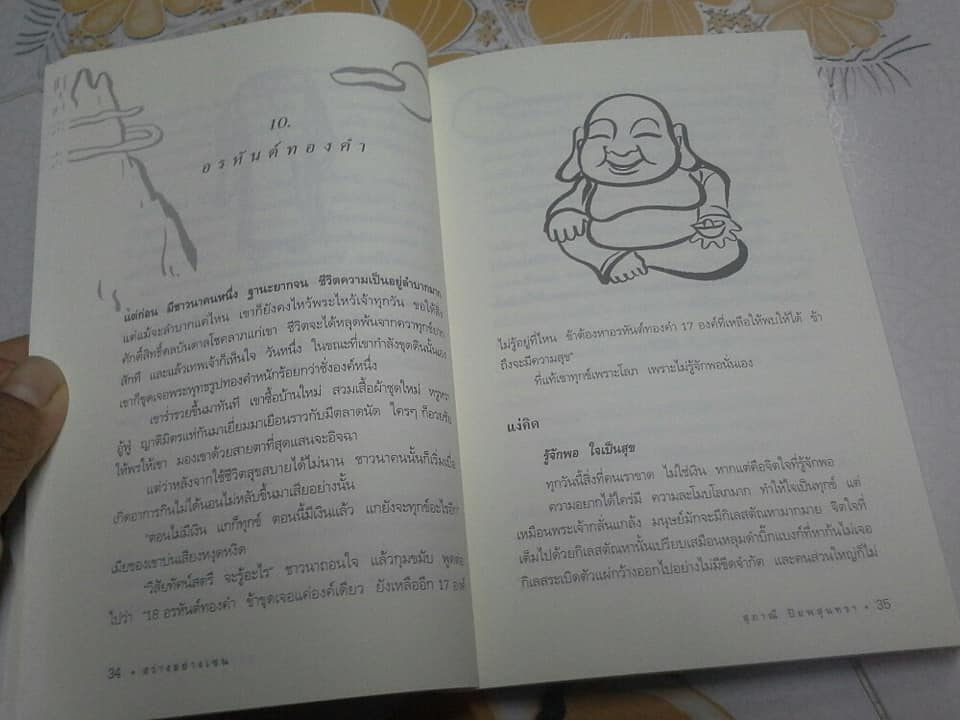 10.
อรหันต์ทองคำ
แต่ก่อน มีชาวนาคนหนึ่ง ฐานะยากจน ชีวิตความเป็นอยู่ลำบากมาก
แต่แม้จะลำบากแค่ไหน เขาก็ยังคงไหว้พระไหว้เจ้าทุกวัน ขอให้สิ่ง
ศักดิ์สิทธิ์ดลบันดาลโชคลาภแก่เขา ชีวิตจะได้หลุดพ้นจากความทุกข์ยาก
สักที และแล้วเทพเจ้าก็เห็นใจ วันหนึ่ง ในขณะที่เขากำลังขุดดินนั้นเอง
เขาก็ขุดเจอพระพุทธรูปทองคำหนักร้อยกว่าชั่งองค์หนึ่ง
เขาร่ำรวยขึ้นมาทันที เขาซื้อบ้านใหม่ สวมเสื้อผ้าชุดใหม่ หรูหรา
อู้ฟู่ ญาติมิตรแห่กันมาเยี่ยมมาเยือนราวกับมีตลาดนัด ใครๆ ก็อวยชัย
ให้พรให้เขา มองเขาด้วยสายตาที่สุดแสนจะอิจฉา
แต่ว่าหลังจากใช้ชีวิตสุขสบายได้ไม่นาน ชาวนาคนนั้นก็เริ่มเบื่อ
เกิดอาการกินไม่ได้นอนไม่หลับขึ้นมาเสียอย่างนั้น
"ตอนไม่มีเงิน แกก็ทุกข์ ตอนนี้มีเงินแล้ว แกยังจะทุกข์อะไรอีก"
เมียของเขาบ่นเสียงหงุดหงิด
"วิสัยทัศน์สตรี จะรู้อะไร" ชาวนาถอนใจ แล้วกุมขมับ พูดต่อ
ไปว่า "18 อรหันต์ทองคำ ข้าขุดเจอแค่องค์เดียว ยังเหลืออีก 17 องค์
34 • สว่างอย่างเซน
ไม่รู้อยู่ที่ไหน ข้าต้องหาอรหันต์ทองคำ 17 องค์ที่เหลือให้พบให้ได้ ข้า
ถึงจะมีความสุข"
ที่แท้เขาทุกข์เพราะโลภ เพราะไม่รู้จักพอนั่นเอง
แง่คิด
รู้จักพอ ใจเป็นสุข
ทุกวันนี้สิ่งที่คนเราขาด ไม่ใช่เงิน หากแต่คือจิตใจที่รู้จักพอ
ความอยากได้ใคร่มี ความละโมบโลภมาก ทำให้ใจเป็นทุกข์ แต่
เหมือนพระเจ้ากลั่นแกล้ง มนุษย์มักจะมีกิเลสตัณหามากมาย จิตใจที่
เต็มไปด้วยกิเลสตัณหานั้นเปรียบเสมือนหลุมดำบิ๊กแบงก์ที่หาก้นไม่เจอ
กิเลสระเบิดตัวแผ่กว้างออกไปอย่างไม่มีขีดจำกัด และคนส่วนใหญ่ก็ไม่
สุภาณี ปิยพสุนทรา • 35